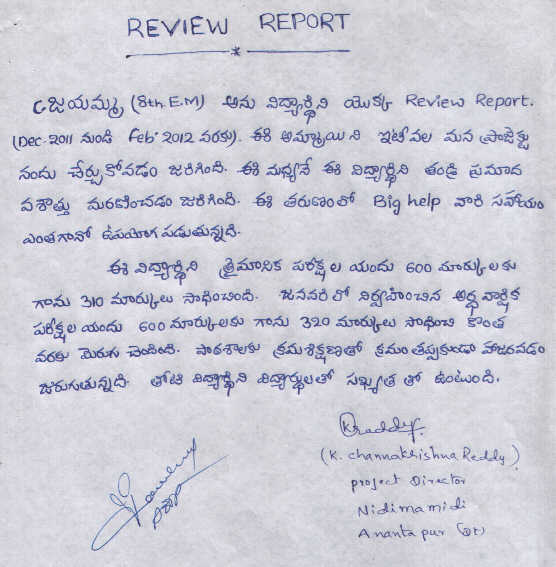 REVIEW REPORT
C జయమ్మ (8th. E.M) అను విద్యార్థిని యొక్క Review Report.
(Dec-2011 నుండి Feb' 2012 వరకు). ఈ అమ్మాయిని ఇటీవల మన ప్రాజెక్టు
నందు చేర్చుకోవడం జరిగింది. ఈ మధ్యనే ఈ విద్యార్థిని తండ్రి ప్రమాద
వశాత్తు మరణించడం జరిగింది. ఈ తరుణంలో Big help వారి సహాయం
ఎంతగానో ఉపయోగ పడుతున్నది.
ఈ విద్యార్థిని త్రైమాసిక పరీక్షల యందు 600 మార్కులకు
గాను 310 మార్కులు సాధించింది. జనవరి లో నిర్వహించిన అర్ధవార్షిక
పరీక్షల యందు 600 మార్కులకు గాను 320 మార్కులు సాధించి కొంత
వరకు మెరుగు చెందింది. పాఠశాలకు క్రమశిక్షణతో క్రమం తప్పకుండా హాజరవడం
జరుగుతున్నది. తోటి విద్యార్థిని విద్యార్థులతో సఖ్యత తో ఉంటుంది.
(K. channakrishna Reddy)
project Director
Nidimamidi
Anantapur (Dt)